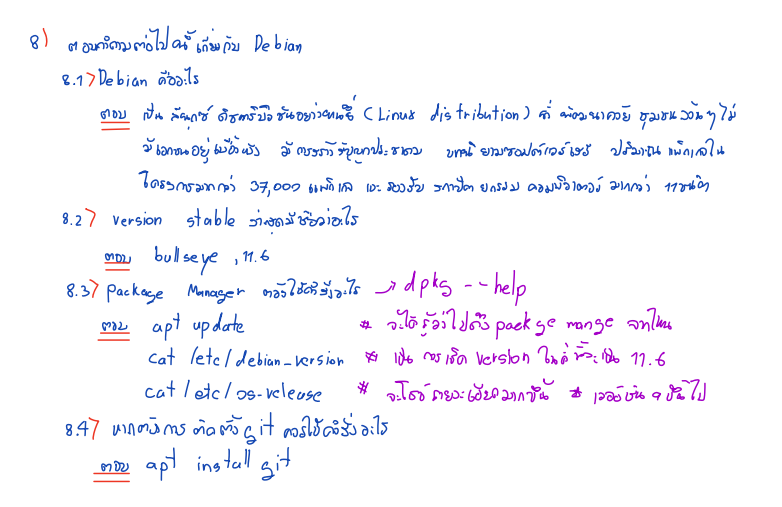 8) ตอบคำถามต่อไปนี้ เกี่ยวกับ Debian
8.1) Debian คืออะไร
ตอบ เป็น ลีนุกซ์ ดิสทริบิวชันอย่างหนึ่ง (Linux distribution) ที่ พัฒนาด้วย ชุมชน ๆ ไม่
มีเอกชนอยู่เบื้องหลัง มี สัญญาประชาคม บทนิยามซอฟต์แวร์เสรี ปริมาณ แพ็กเกจใน
โครงการมากกว่า 37,000 แพ็กเกจ และ รองรับ สถาปัตยกรรม คอมพิวเตอร์ มากกว่า 11 ชนิด
8.2) version stable ล่าสุดมีชื่อว่าอะไร
ตอบ bullseye , 11.6
8.3) Package Manager ต้องใช้คำสั่งอะไร → dpkg --help
ตอบ apt update * จะได้รู้ว่าไปดึง packge mange จากไหน
cat /etc/debian_version * เป็น การเช็ค version ในที่นี้จะเป็น 11.6
cat /etc/os-release * จะโชว์รายละเอียดมากขึ้น * เวอร์ชัน 9 ขึ้นไป
8.4) หากต้องการ ติดตั้ง git ควรใช้คำสั่งอะไร
ตอบ apt install git